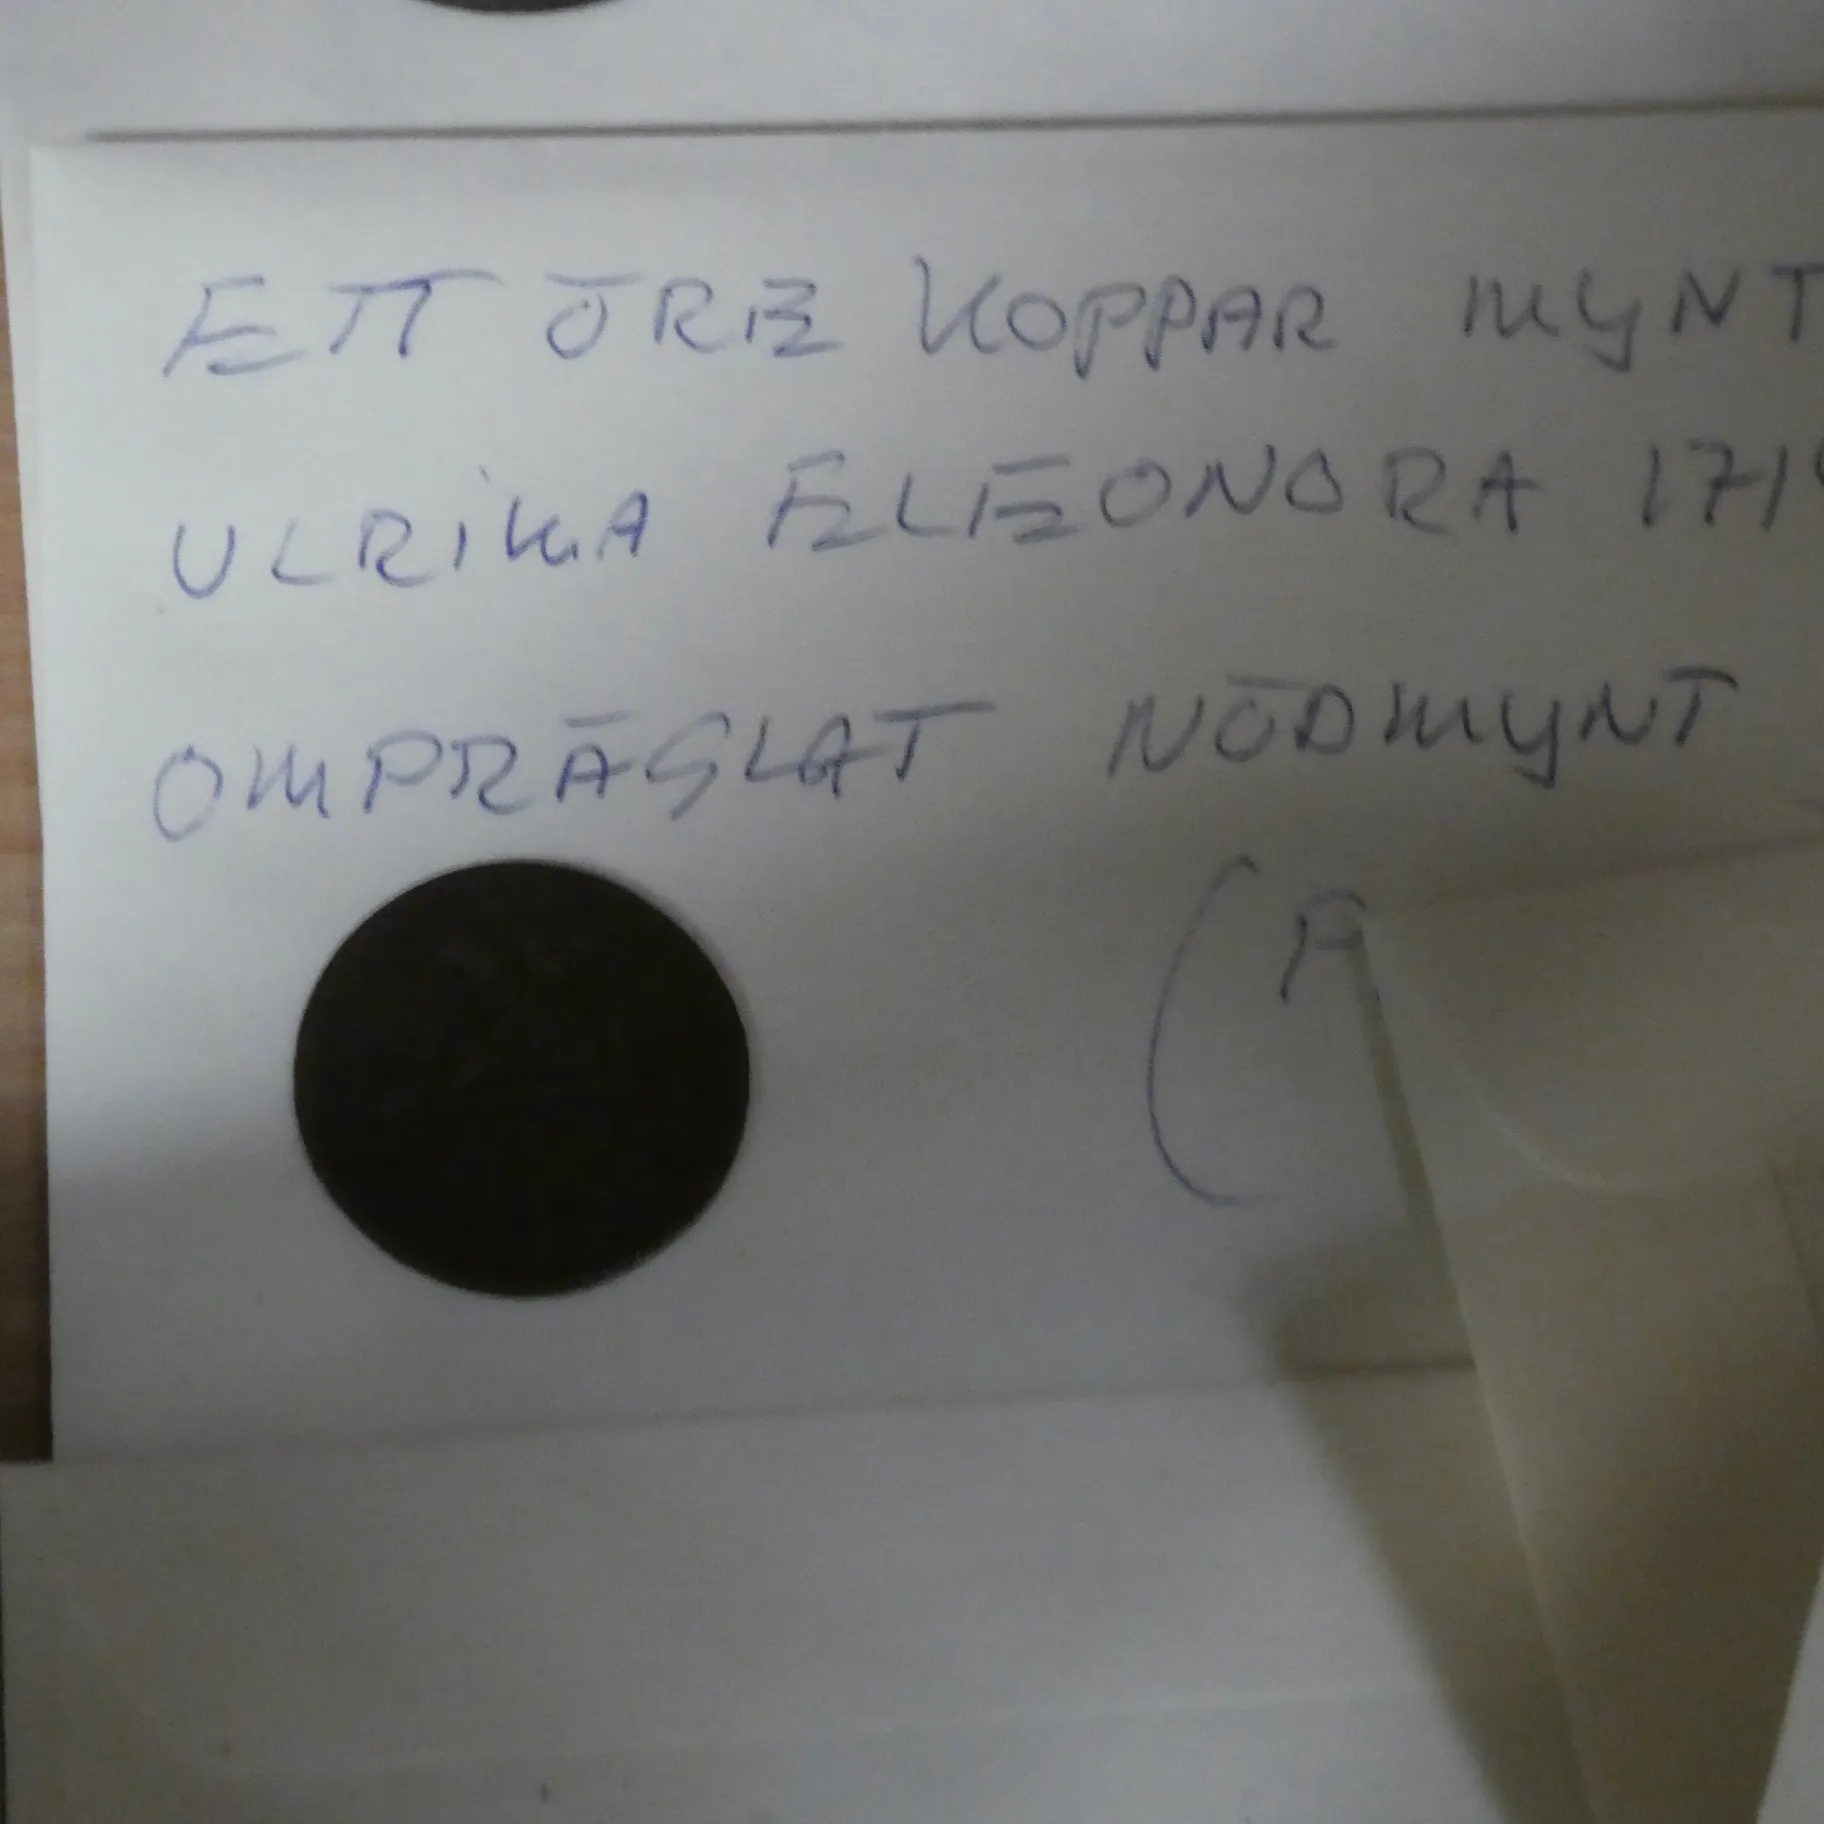 ETT ÖRE KOPPAR MYNT
ULRIKA ELEONORA 171
OMPRÄGLAT NÖDMYNT
(